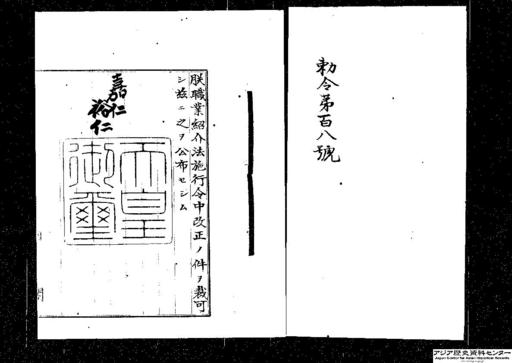 勅令第百八號
朕職業紹介法施行令中改正ノ件ヲ裁可
シ茲ニ之ヲ公布セシム
嘉仁
裕仁
天皇
御璽
アジア歴史資料センター
Japan Center for Asian Historical Records